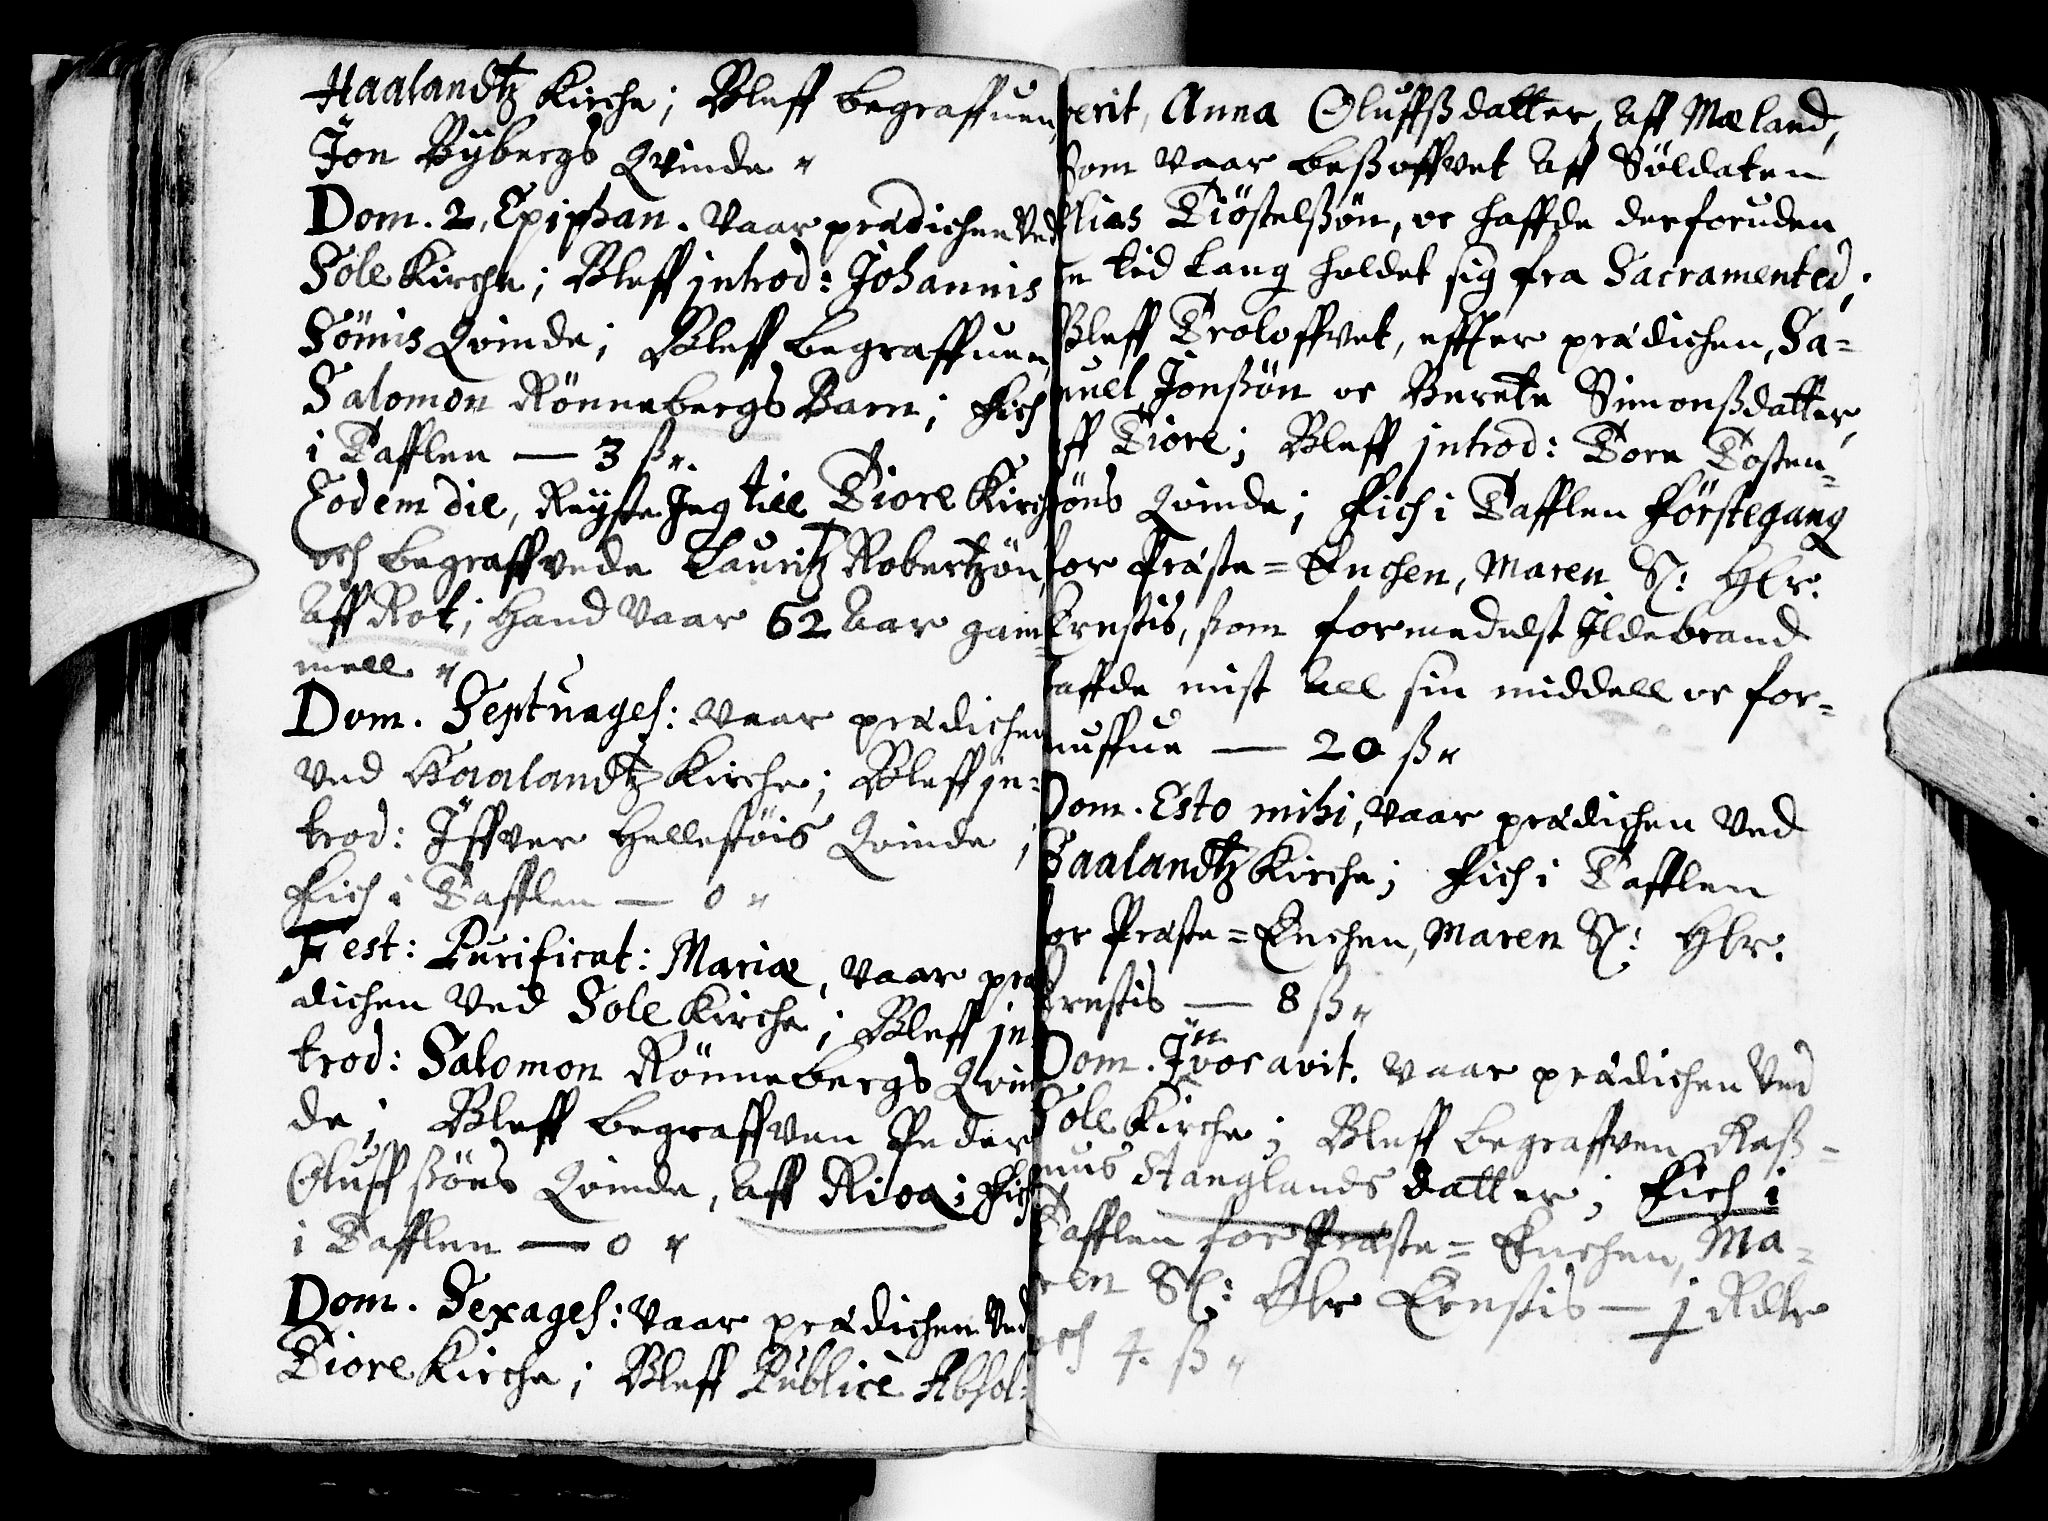 Haalandtz Kirche; Bleff begraffuen
Jon Rÿbergs Qvinde
Dom. 2, Epiphan. Vaar prædichen Ved
Sole Kirche; Bleff introd: Johannis
Sömis Qvinde; Bleff begraffuen
Salomon Rönnebergs Barn; Fich
i Tafflen — 3 ß
Eodem die, Reÿste Jeg till Tiore Kirch
och begraffvede Lauritz Robertzön,
Aff Rot; Hand Vaar 62 Aar gam-
mell
Dom. Septuages: Vaar prædichen
Ved Haalandtz Kirche; Bleff in-
trod: Iffver Hellestöis Qvinde;
Fich i Tafflen — 0
Fest: Purificat: Mariæ, Vaar præ
dichen Ved Sole Kirche; Bleff in-
trod: Salomon Rönnebergs Qvin
de; Bleff begraffven Peder
Oluffßöns Qvinde, Aff Risa; Fich
i Tafflen — 0
Dom. Sexages: Vaar prædichen Ved
Tiore Kirche; Bleff Publicè Absol-
verit, Anna Oluffßdatter, Aff Mæland,
Som Vaar besoffvet Aff Söldaten
Elias Tiöstelßön, oc haffde desforuden
en tid lang holdet sig fra Sacramented;
Bleff Troloffvet, effter prædichen, Sa-
muel Jonßön oc Berete Simonßdatter,
Aff Tiore; Bleff introd: Tore Tosten-
söns Qvinde; Fich i Tafflen Förstegang
for Præste-Enchen, Maren Sl: Hlr.
Ernstis, ßom formedelst Ildebrand
haffde mist All sin middell oc for-
muffue — 20 ß
Dom. Esto mihi, Vaar prædichen Ved
Haalandtz Kirche; Fich i Tafflen
for Præste-Enchen, Maren Sl: Hlr.
Ernstis — 8 ß
Dom. Invocavit. Vaar prædichen Ved
Sole Kirche; Bleff begraffven Raß-
mus Stanglands datter; Fich i
Tafflen for Præste-Enchen, Ma-
ren Sl: Hlr Ernstis — 1 Rdlr
och 4. ß